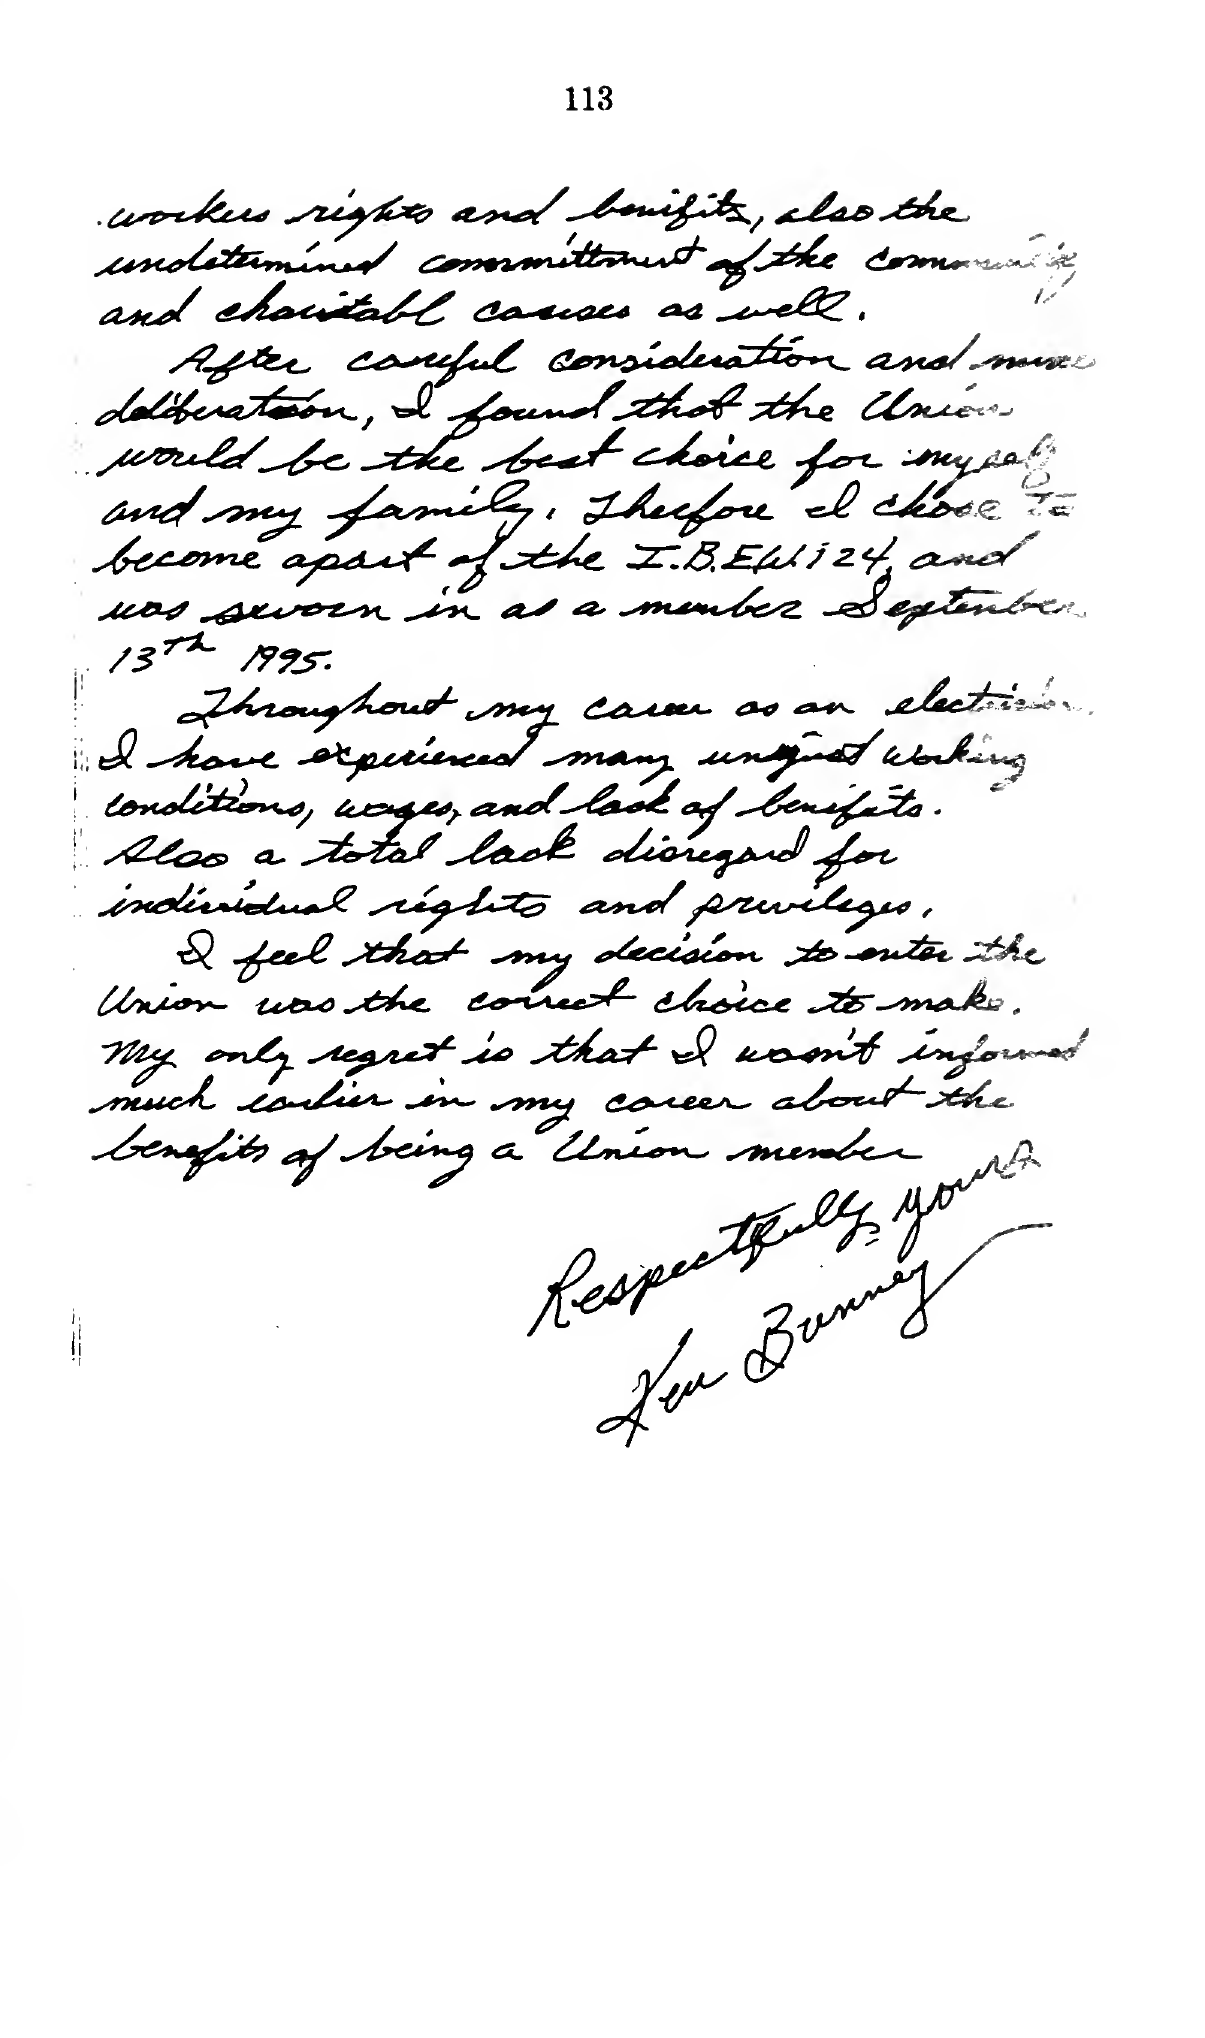 113
workers rights and benifits, also the
undetermined committment of the community
and charitabl causes as well.
After careful consideration and
deliberation, I found that the Union
would be the best choice for myself
and my family. Therfore I chose to
become apart of the I.B.E.W. 124, and
was sworn in as a member September
13th 1995.
Throughout my career as an electrician,
I have experienced many unjust working
conditions, wages, and lack of benifits.
Also a total lack disregard for
individual rights and privileges.
I feel that my decision to enter the
Union was the correct choice to make.
My only regret is that I wasn't informed
much earlier in my career about the
benefits of being a Union member
Respectfully yours
Ken Bunney